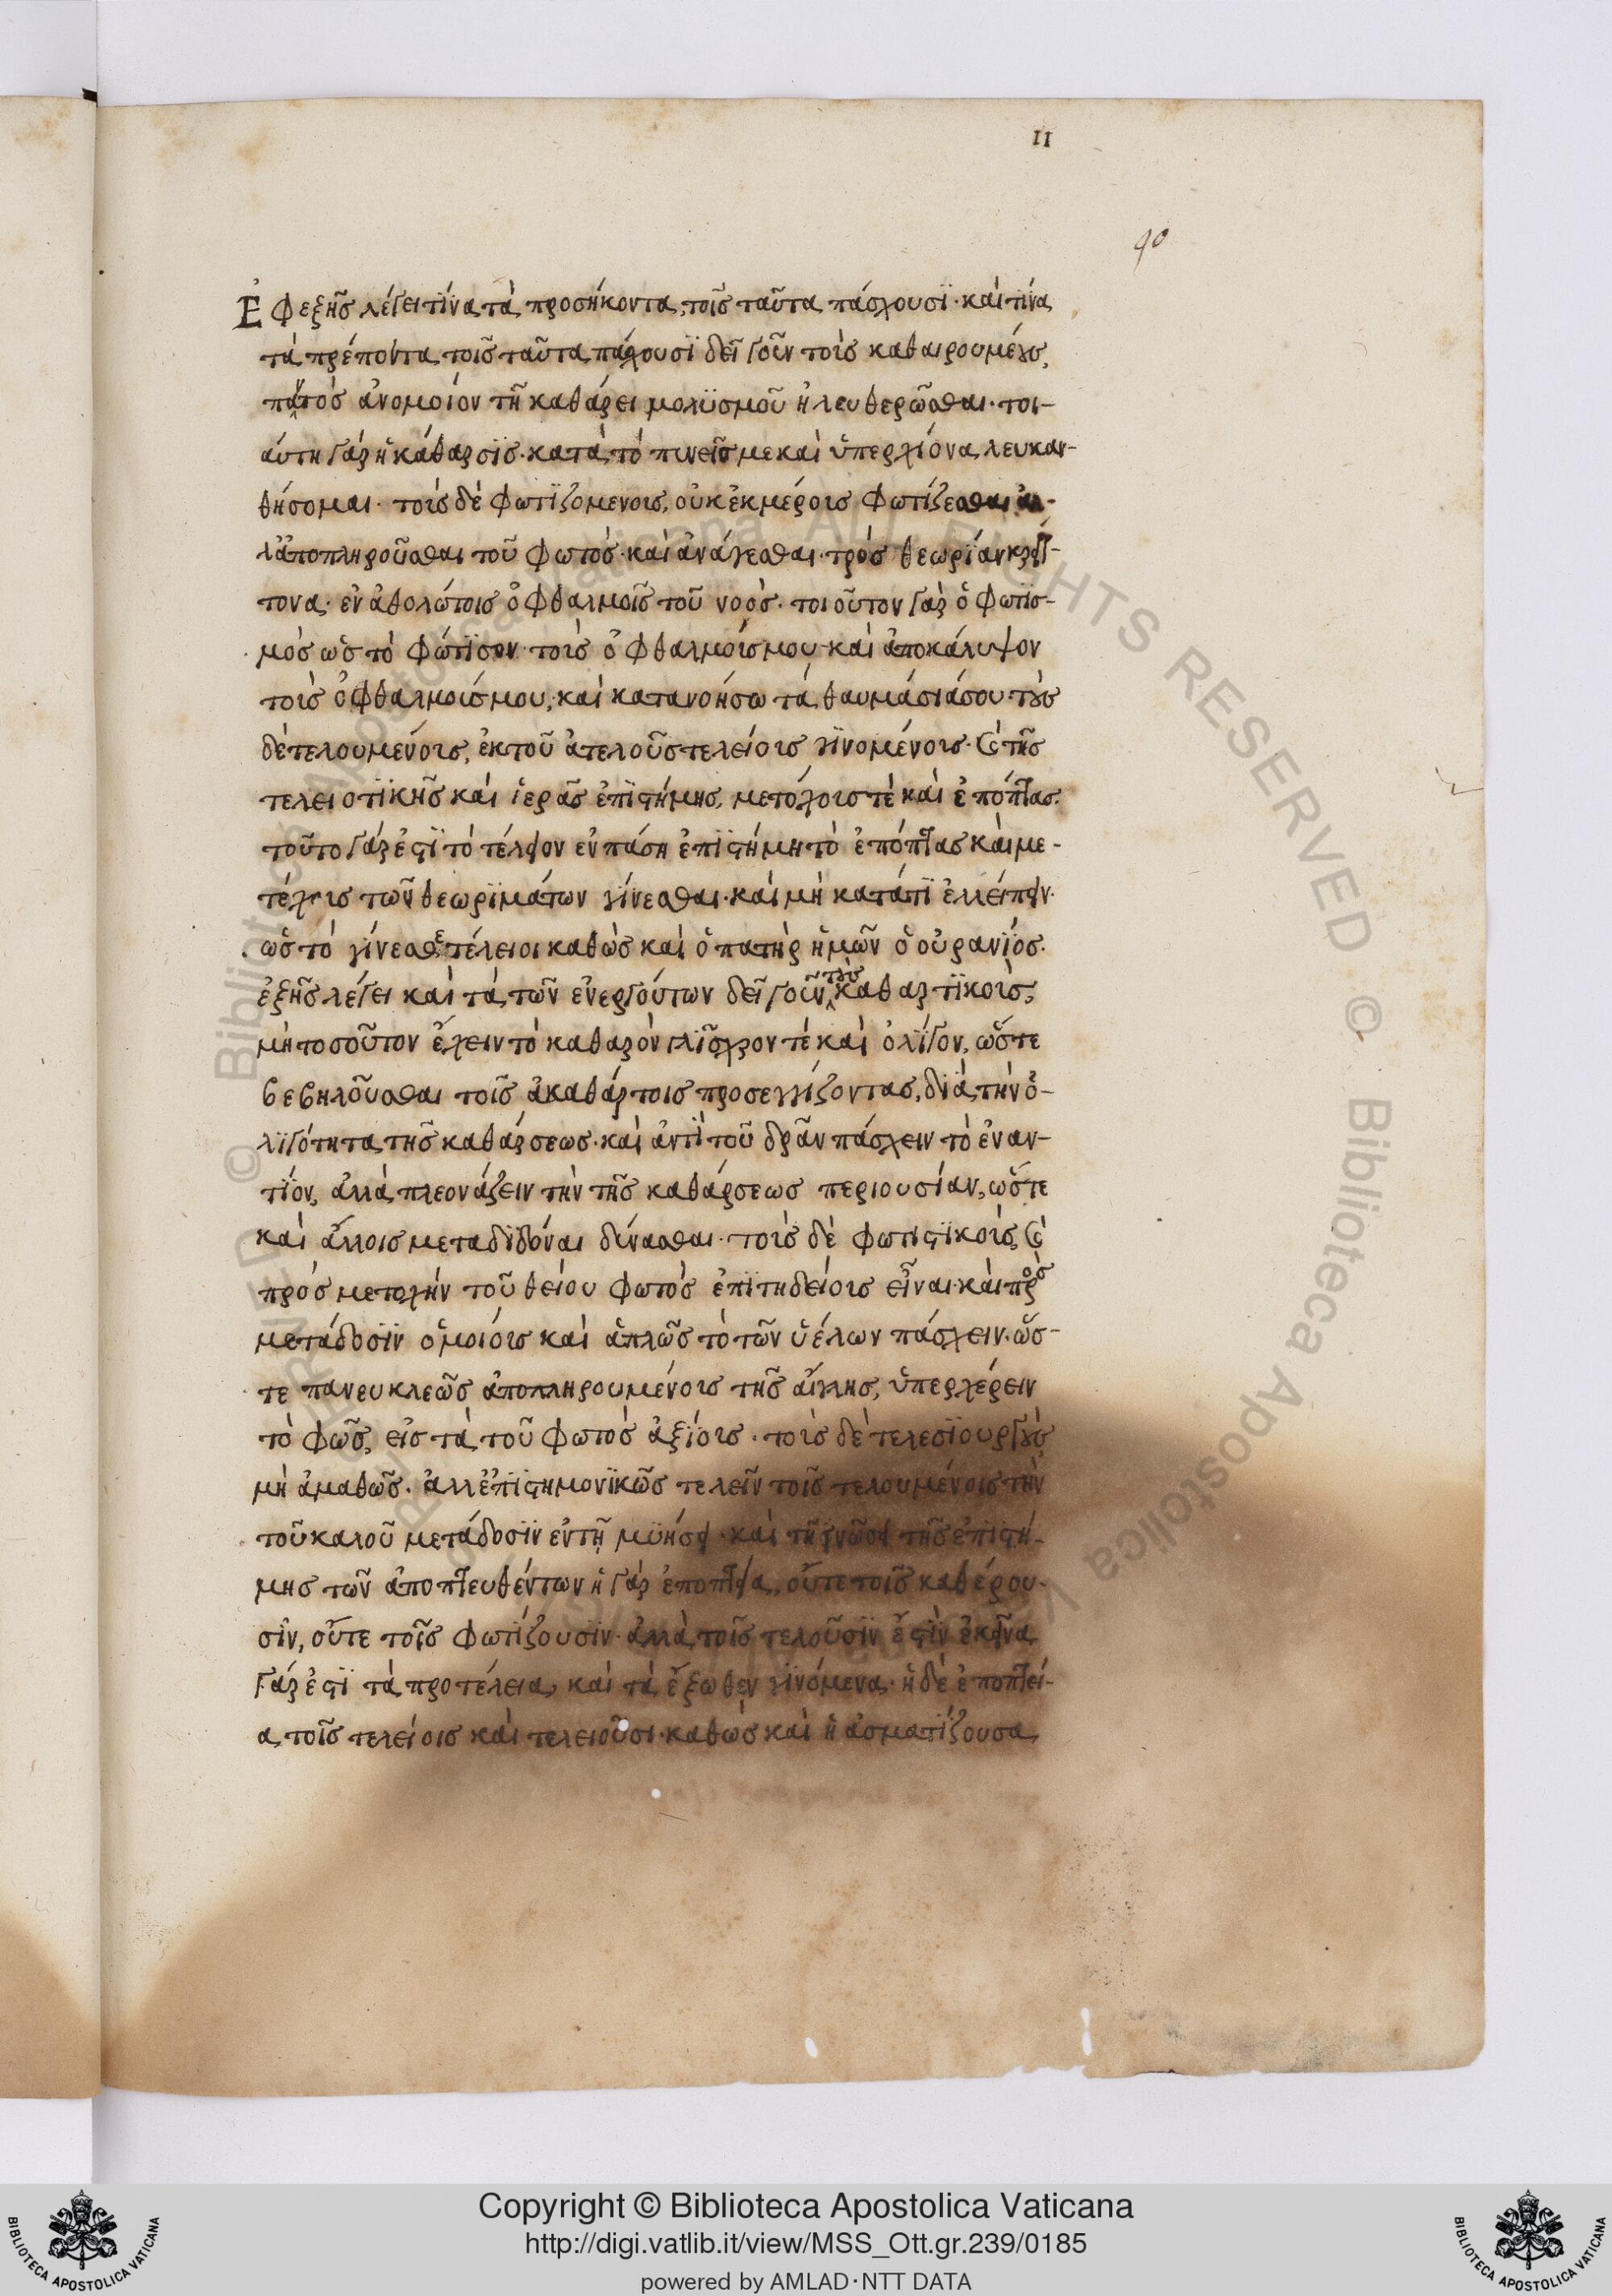 11
90
Ἐφεξῆς λέγει τίνα τὰ προσήκοντα, τοῖς ταῦτα πάσχουσϊ· καὶ τίνα
τὰ πρέποντα τοῖς ταῦτα πάσχουσϊ δεῖ γοῦν τοὺς καθαιρουμένους,
παντὸς ἀνομοίον τῇ καθάρσει μολϋσμοῦ ἠλευθερῶσθαι· τοι-
αύτη γὰρ ἡ κάθαρσϊς· κατὰ τὸ πινεῖς με καὶ ὑπὲρ χϊόνα λευκαν-
θήσομαι· τοὺς δὲ φωτϊζομένους, οὐκ ἐκμέρους φωτίζεσθαι ἀλ-
λἀποπληροῦσθαι τοῦ φωτὸς· καὶ ἀνάγεσθαι· πρὸς θεωρίαν κρείτ-
τονα· ἐν ἀθολώτοις ὀφθαλμοῖς τοῦ νοός· τοιοῦτον γὰρ ὁ φωτϊσ-
μὸς ὡς τὸ φώτϊσον· τοὺς ὀφθαλμούς μου· καὶ ἀποκάλυψον
τοὺς ὀφθαλμούς μου, καὶ κατανοήσω τὰ θαυμάσιάσου· τοὺς
δὲ τελουμένους, ἐκ τοῦ ἀτελοῦς τελείους γϊνομένους· καὶ τῆς
τελειοτϊκῆς καὶ ἱερᾶς ἐπϊστήμης, μετόχους τὲ καὶ ἐπόπτας.
τοῦτο γάρ ἐστϊ τὸ τέλειον ἐν πάση ἐπϊστήμη τὸ ἐπόπτας καὶ με-
τόχους τῶν θεωρϊμάτων γίνεσθαι· καὶ μὴ κατάτϊ ἐλλείπειν·
ὡς τὸ γίνεσθε τέλειοι καθὼς καὶ ὁ πατὴρ ἡμῶν ὁ οὐρανϊός.
ἑξῆς λέγει καὶ τὰ τῶν ἐνεργούντων δεῖ γοῦν τοὺς καθαρτϊκοὺς,
μὴ τοσοῦτον ἔχειν τὸ καθαρὸν γλῖσχρον τὲ καὶ ὀλΐγον, ὥστε
βεβηλοῦσθαι τοῖς ἀκαθάρτοις προσεγγίζοντας, διὰ τὴν ὀ-
λϊγότητα τῆς καθάρσεως· καὶ ἀντὶ τοῦ δρᾶν πάσχειν τὸ ἐναν-
τΐον, ἀλλὰ πλεονάζειν τὴν τῆς καθάρσεως περιουσίαν, ὥστε
καὶ ἄλλοις μεταδϊδόναι δύνασθαι· τοὺς δὲ φωτιστϊκοὺς, καὶ
πρὸς μετοχὴν τοῦ θείου φωτὸς ἐπϊτηδείους εἶναι· καὶ πρὸς
μετάδοσϊν ὁμοίους καὶ ἁπλῶς τὸ τῶν ὑέλων πάσχειν· ὥσ-
τε πανευκλεῶς ἀποπληρουμένους τῆς αἴγλης, ὑπερχέρειν
τὸ φῶς, εἰς τὰ τοῦ φωτὸς ἀξΐους· τοὺς δὲ τελεσϊουργοὺς
μὴ ἀμαθῶς· ἀλλἐπϊστημονϊκῶς τελεῖν τοῖς τελουμένοις τὴν
τοῦ καλοῦ μετάδοσϊν ἐν τῇ μϋήσει· καὶ τῇ γνῶσει τῆς ἐπϊστή-
μης τῶν ἀποπτευθέντων ἡ γὰρ ἐποπτεία, οὔτε τοῖς καθέρου-
σϊν, οὔτε τοῖς φωτΐζουσϊν· ἀλλὰ τοῖς τελοῦσϊν ἐστϊν ἐκεῖνα
γάρ ἐστϊ τὰ προτέλεια, καὶ τὰ ἔξωθεν γϊνόμενα· ἡ δὲ ἐποπτεί-
α, τοῖς τελείοις καὶ τελειοῦσι· καθὼς καὶ ἡ ἀσματΐζουσα
Copyright © Biblioteca Apostolica Vaticana
http://digi.vatlib.it/view/MSS_Ott.gr.239/0185
powered by AMLAD·NTT DATA
BIBLIOTECA APOSTOLICA VATICANA
BIBLIOTECA APOSTOLICA VATICANA